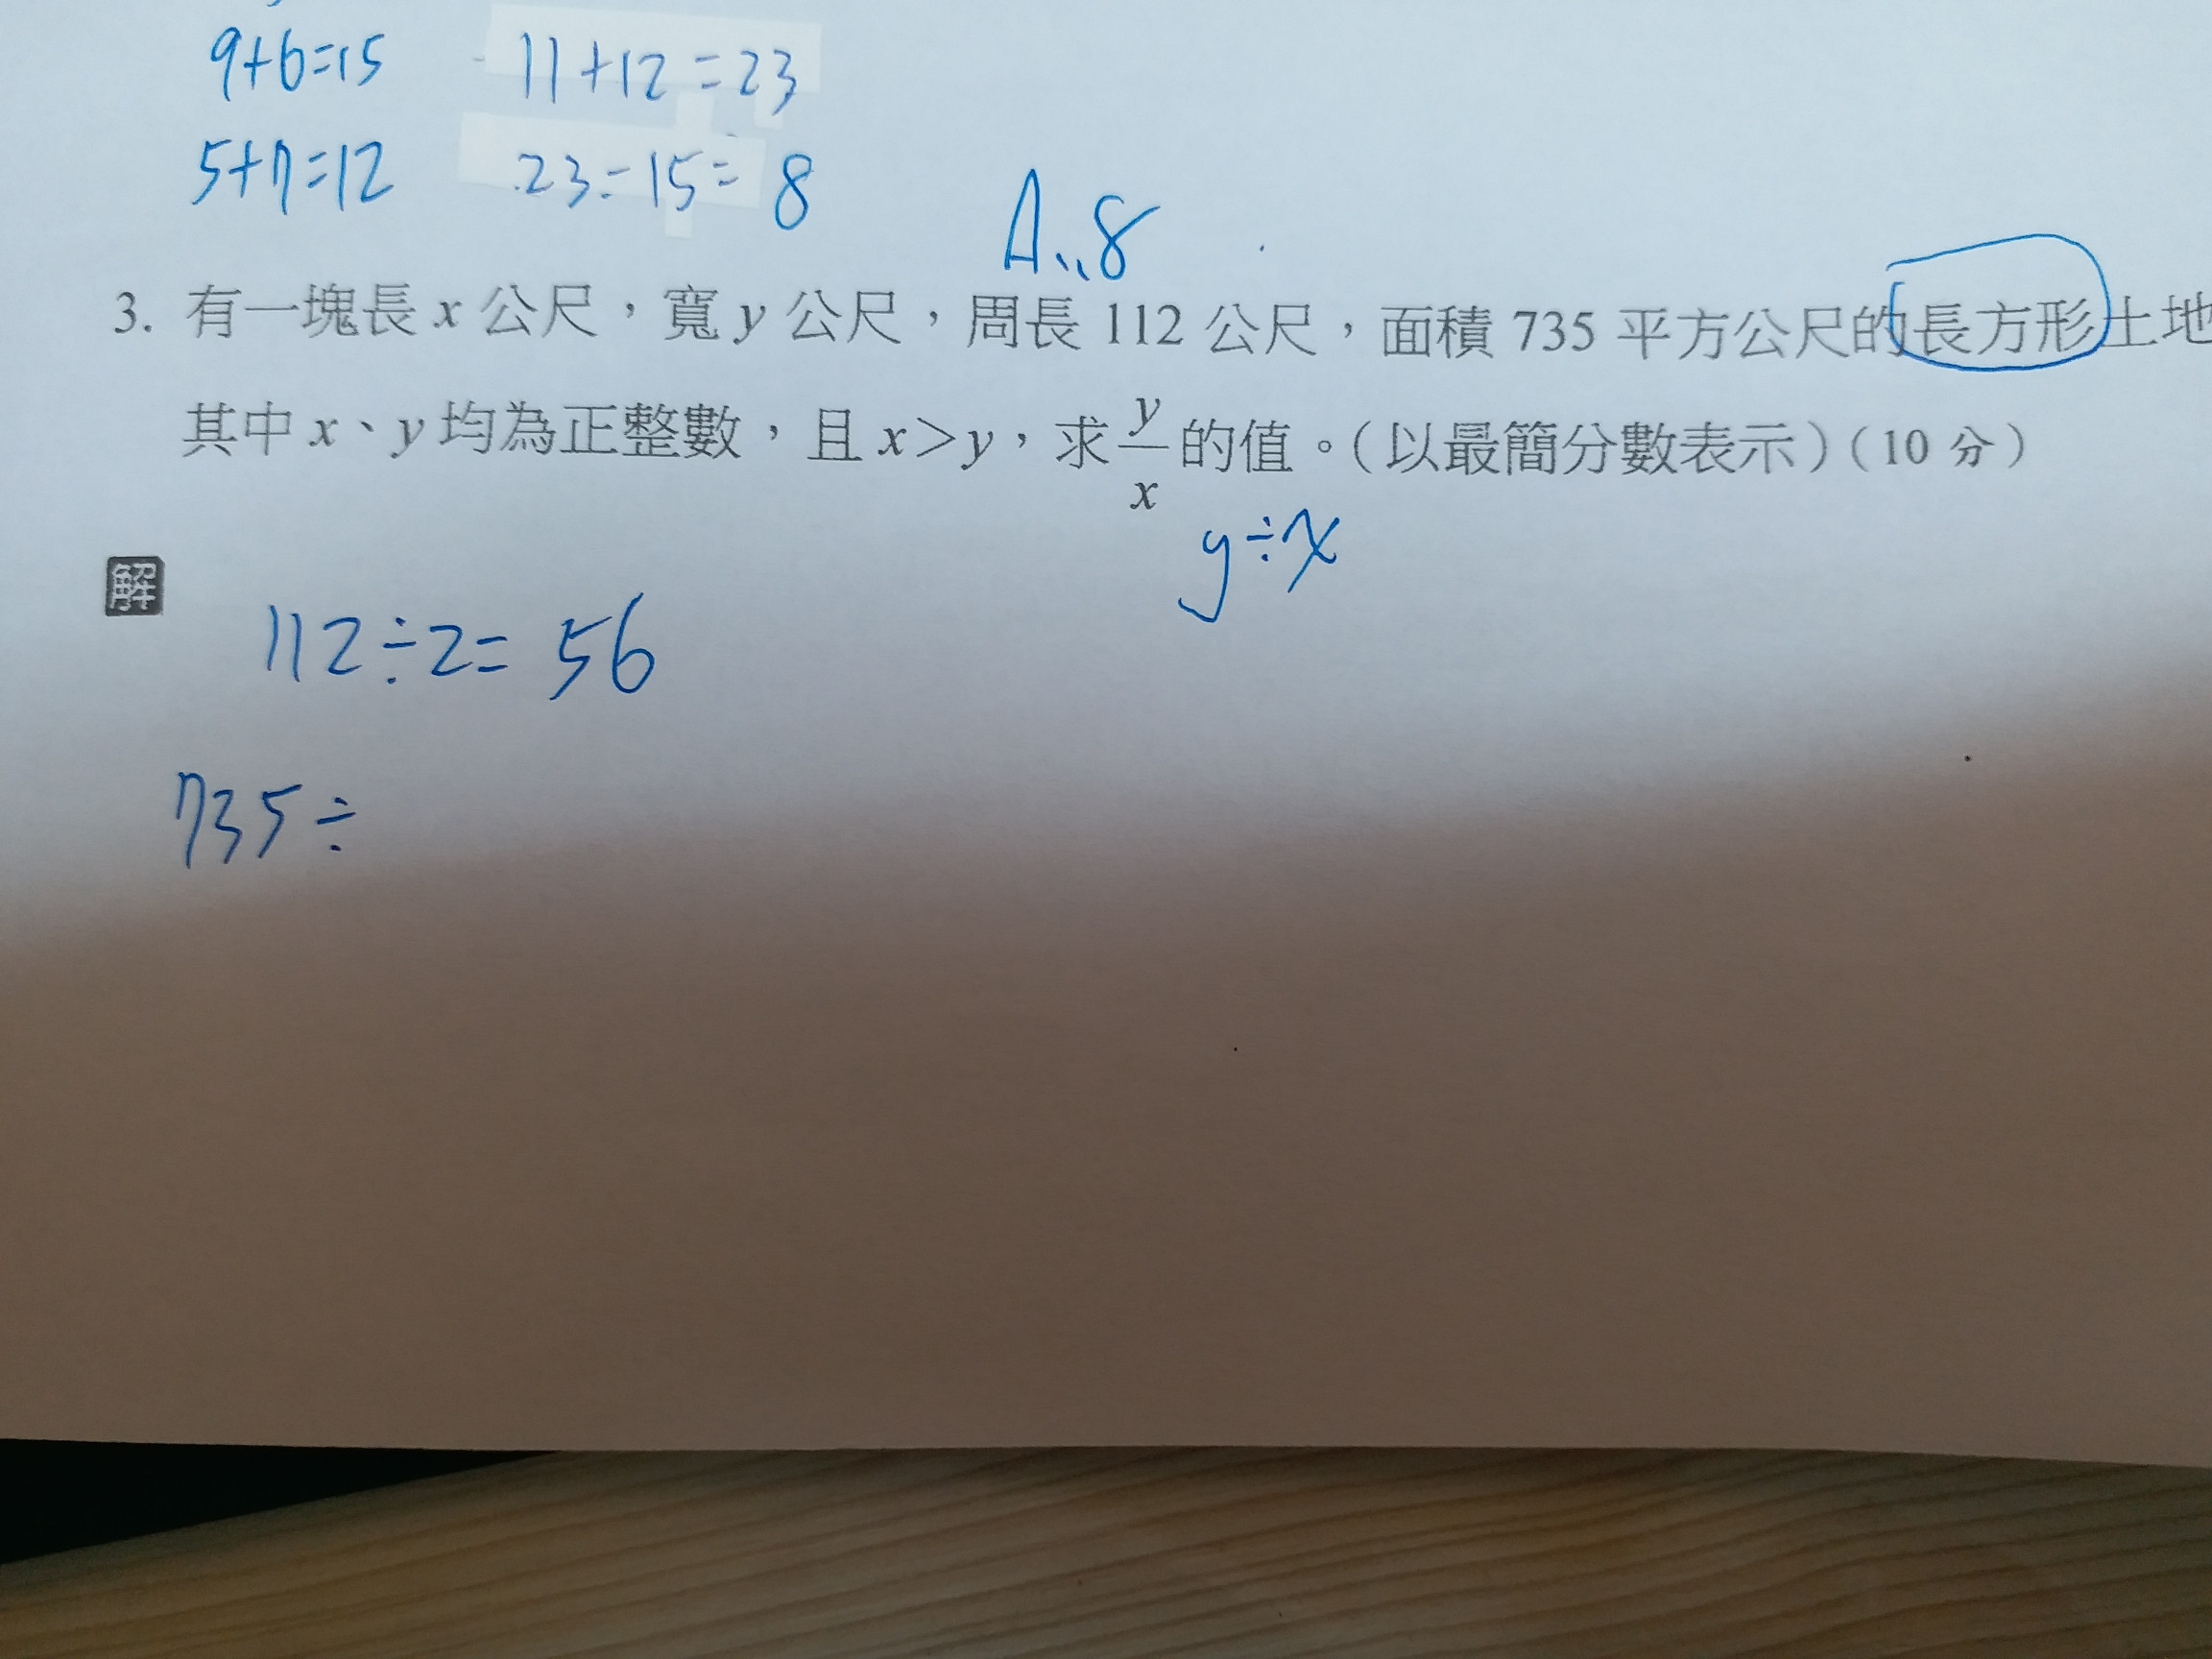 9+6=15 11+12=23
5+7=12 23-15=8
A:8
3. 有一塊長 x 公尺，寬 y 公尺，周長 112 公尺，面積 735 平方公尺的長方形土地
其中 x、y 均為正整數，且 x＞y，求 y/x 的值。（以最簡分數表示）（10 分）
y÷x
解
112÷2=56
735÷